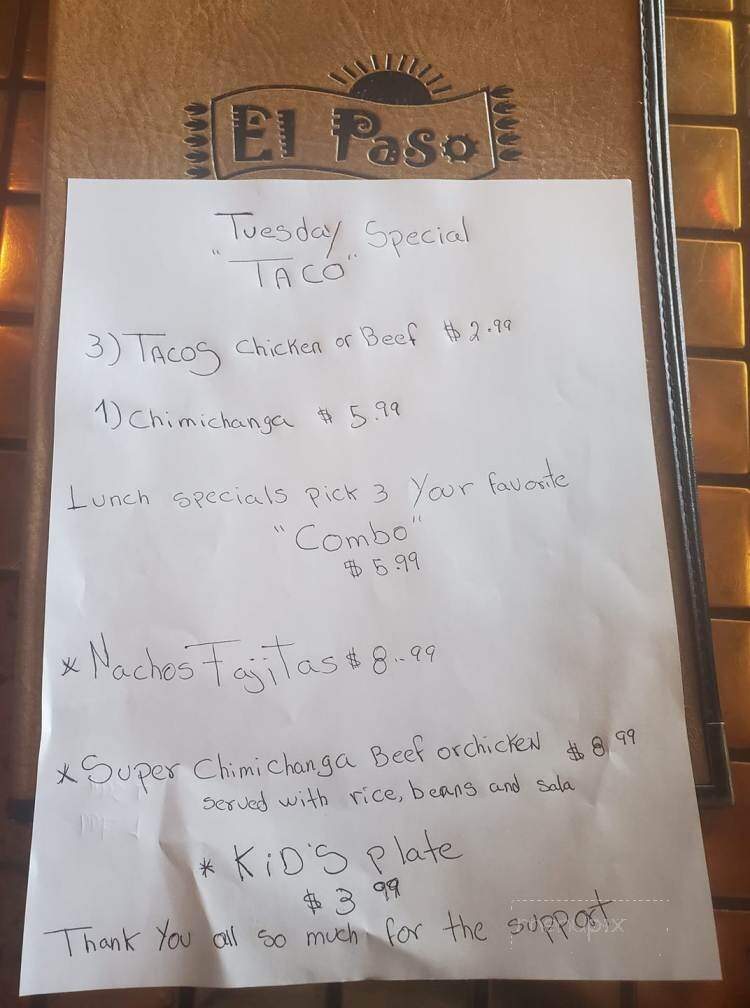 El Paso
Tuesday Special
"TACO"
3) TACOS Chicken or Beef $2.99
1) Chimichanga $ 5.99
Lunch specials pick 3 Your favorite
"Combo"
$5.99
* Nachos Fajitas $8..99
* Super Chimichanga Beef or chicken $8.99
served with rice, beans and sala
* KiD'S plate
$3 99
Thank You all so much for the support
menupix